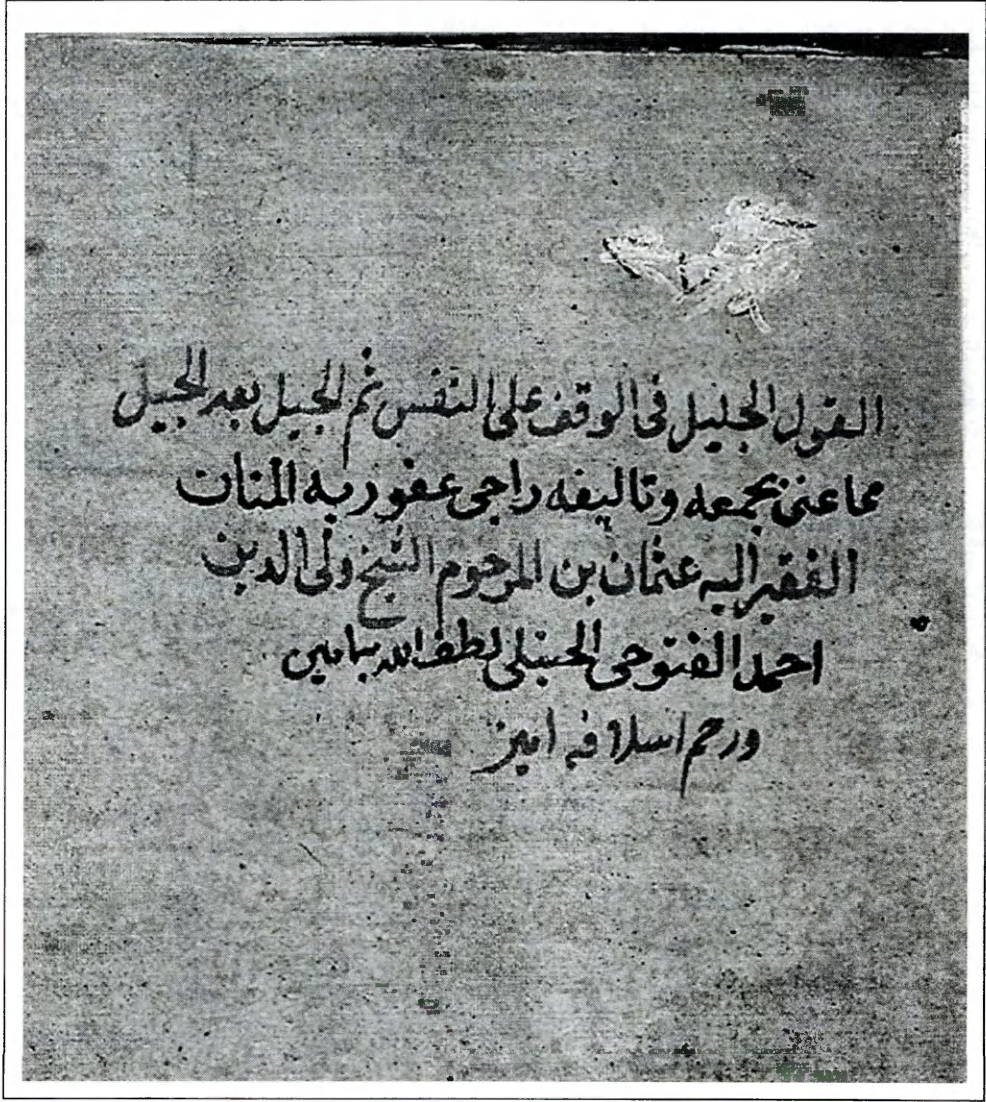 القول الجليل في الوقف على النفس ثم الجيل بعد الجيل
مما عنى بجمعه وتاليفه راجى عفو ربه المنان
الفقير اليه عثمان بن المرحوم الشيخ ولى الدين
احمد الفتوحى الحنبلى لطف الله
ورحم اسلافه امين